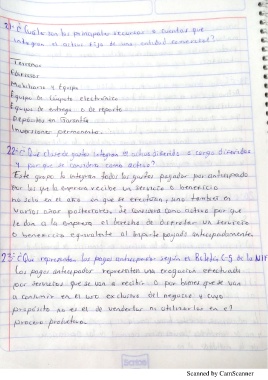 21-¿Cuáles son los principales recursos o cuentas que
integran el activo fijo de una entidad comercial?
Terrenos
Edificios
Mobiliario y Equipo
Equipo de Computo electrónico
Equipo de entrega o de reparto
Depósitos en Garantía
Inversiones permanentes.
22-¿Qué clase de gastos integran el activo diferido o cargos diferidos
y por que se considera como activo?
Este grupo lo integran todos los gastos pagados por anticipado
por los que la empresa recibe un servicio o beneficio
no solo en el año en que se efectúan, sino también en
varios años posteriores, se considera como activo por que
le dan a la empresa el derecho de disfrutar un servicio
o beneficio equivalente al importe pagado anticipadamente.
23-¿Que representan los pagos anticipados según el Boletín C-5 de la NIF
Los pagos anticipados representan una erogación efectuada
por servicios que se van a recibir o por bienes que se van
a consumir en el uso exclusivo del negocio y cuyo
propósito no es el de venderlos ni utilizarlos en el
proceso productivo.
Scribe
Scanned by CamScanner